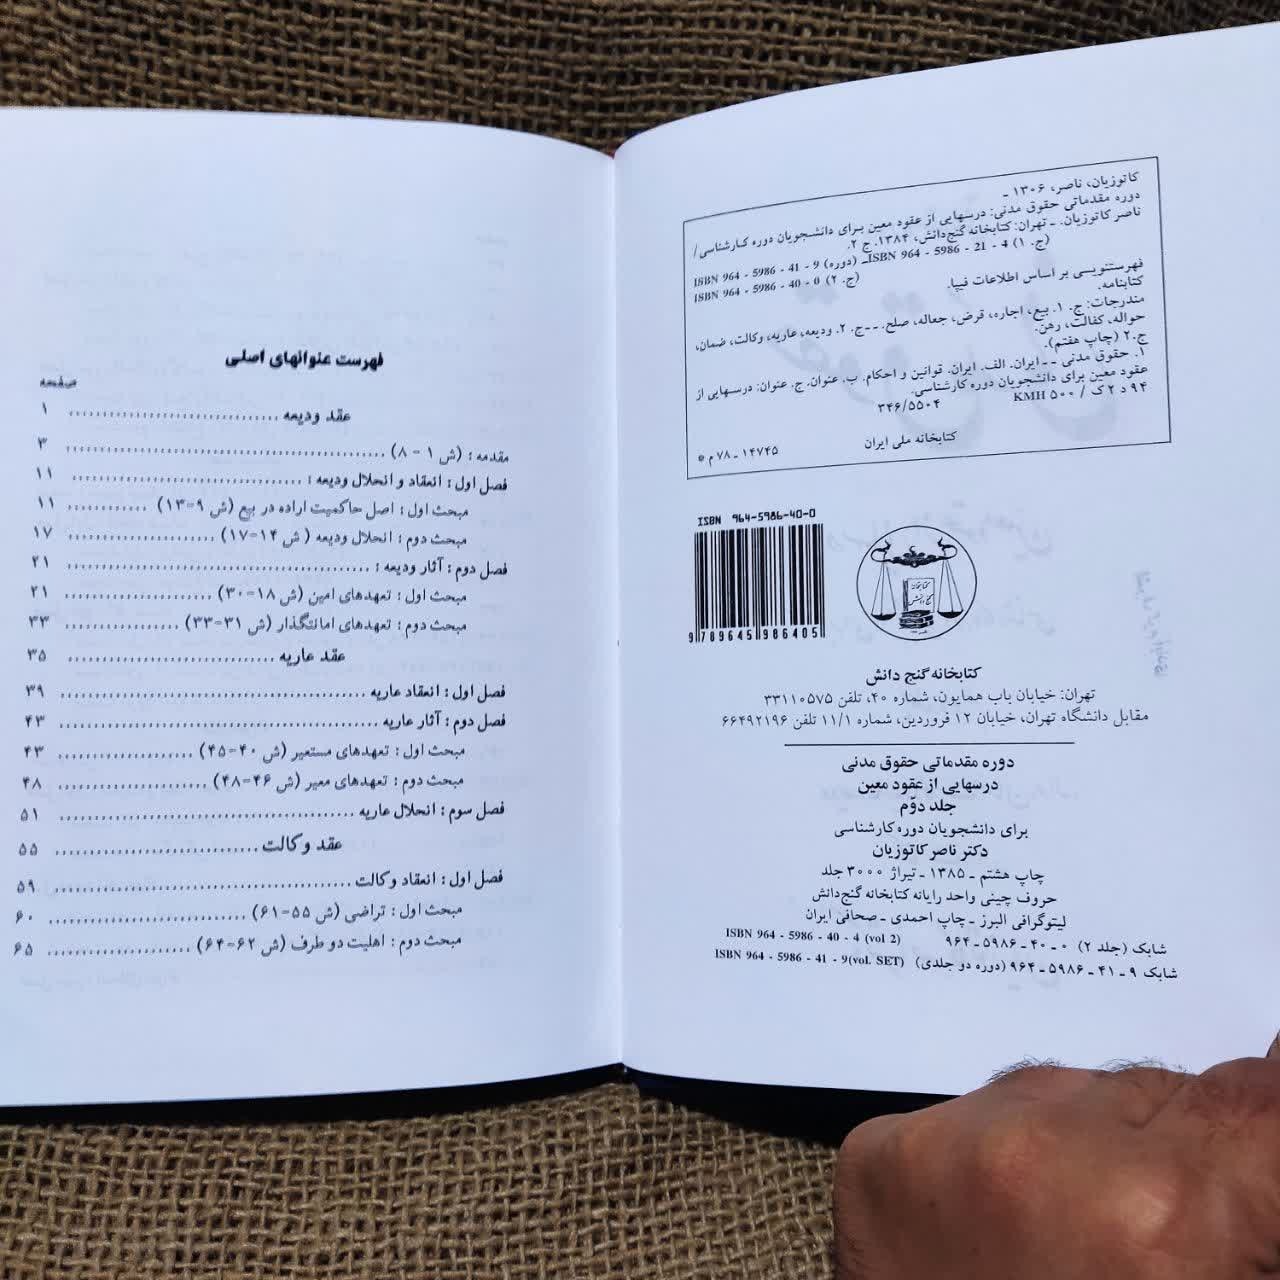 کاتوزیان، ناصر، ۱۳۰۶ ـ
دوره مقدماتی حقوق مدنی: درسهایی از عقود معین برای دانشجویان دوره کارشناسی/
ناصر کاتوزیان. ـ تهران: کتابخانه گنج‌دانش، ۱۳۸۴. ج ۲.
ISBN 964 - 5986 - 41 - 9 (دوره) ـISBN 964 - 5986 - 21 - 4 (ج. ۱)
ISBN 964 - 5986 - 40 - 0 (ج. ۲)
فهرستنویسی بر اساس اطلاعات فیپا.
کتابنامه.
مندرجات: ج. ۱. بیع، اجاره، قرض، جعاله، صلح. ــ ج. ۲. ودیعه، عاریه، وکالت، ضمان،
حواله، کفالت، رهن.
ج.۲ (چاپ هفتم).
۱. حقوق مدنی ــ ایران. الف. ایران. قوانین و احکام. ب. عنوان. ج. عنوان: درسهایی از
عقود معین برای دانشجویان دوره کارشناسی.
۹۴ د ۲ ک / KMH ۵۰۰ ۳۴۶/۵۵۰۴
کتابخانه ملی ایران ۱۴۷۴۵ ـ ۷۸ م *
ISBN 964-5986-40-0
9 789645 986405
کتابخانه گنج دانش
کتابخانه گنج دانش
تهران: خیابان باب همایون، شماره ۴۰، تلفن ۳۳۱۱۰۵۷۵
مقابل دانشگاه تهران، خیابان ۱۲ فروردین، شماره ۱۱/۱ تلفن ۶۶۴۹۲۱۹۶
دوره مقدماتی حقوق مدنی
درسهایی از عقود معین
جلد دوّم
برای دانشجویان دوره کارشناسی
دکتر ناصر کاتوزیان
چاپ هشتم ـ ۱۳۸۵ ـ تیراژ ۳۰۰۰ جلد
حروف چینی واحد رایانه کتابخانه گنج‌دانش
لیتوگرافی البرز ـ چاپ احمدی ـ صحافی ایران
شابک (جلد ۲) ۰ ـ ۴۰ ـ ۵۹۸۶ ـ ۹۶۴ ISBN 964 - 5986 - 40 - 4 (vol 2)
شابک ۹ ـ ۴۱ ـ ۵۹۸۶ ـ ۹۶۴ (دوره دو جلدی) ISBN 964 - 5986 - 41 - 9(vol. SET)
فهرست عنوانهای اصلی
صفحه
عقد ودیعه ............ ۱
مقدمه : (ش ۱ - ۸) ............ ۳
فصل اول : انعقاد و انحلال ودیعه : ............ ۱۱
مبحث اول : اصل حاکمیت اراده در بیع (ش ۹-۱۳) ............ ۱۱
مبحث دوم : انحلال ودیعه ( ش ۱۴-۱۷) ............ ۱۷
فصل دوم : آثار ودیعه : ............ ۲۱
مبحث اول : تعهدهای امین (ش ۱۸-۳۰) ............ ۲۱
مبحث دوم : تعهدهای امانتگذار (ش ۳۱-۳۳) ............ ۳۳
عقد عاریه ............ ۳۵
فصل اول : انعقاد عاریه ............ ۳۹
فصل دوم : آثار عاریه ............ ۴۳
مبحث اول : تعهدهای مستعیر (ش ۴۰-۴۵) ............ ۴۳
مبحث دوم : تعهدهای معیر (ش ۴۶-۴۸) ............ ۴۸
فصل سوم : انحلال عاریه ............ ۵۱
عقد وکالت ............ ۵۵
فصل اول : انعقاد وکالت ............ ۵۹
مبحث اول : تراضی (ش ۵۵-۶۱) ............ ۶۰
مبحث دوم : اهلیت دو طرف (ش ۶۲-۶۴) ............ ۶۵